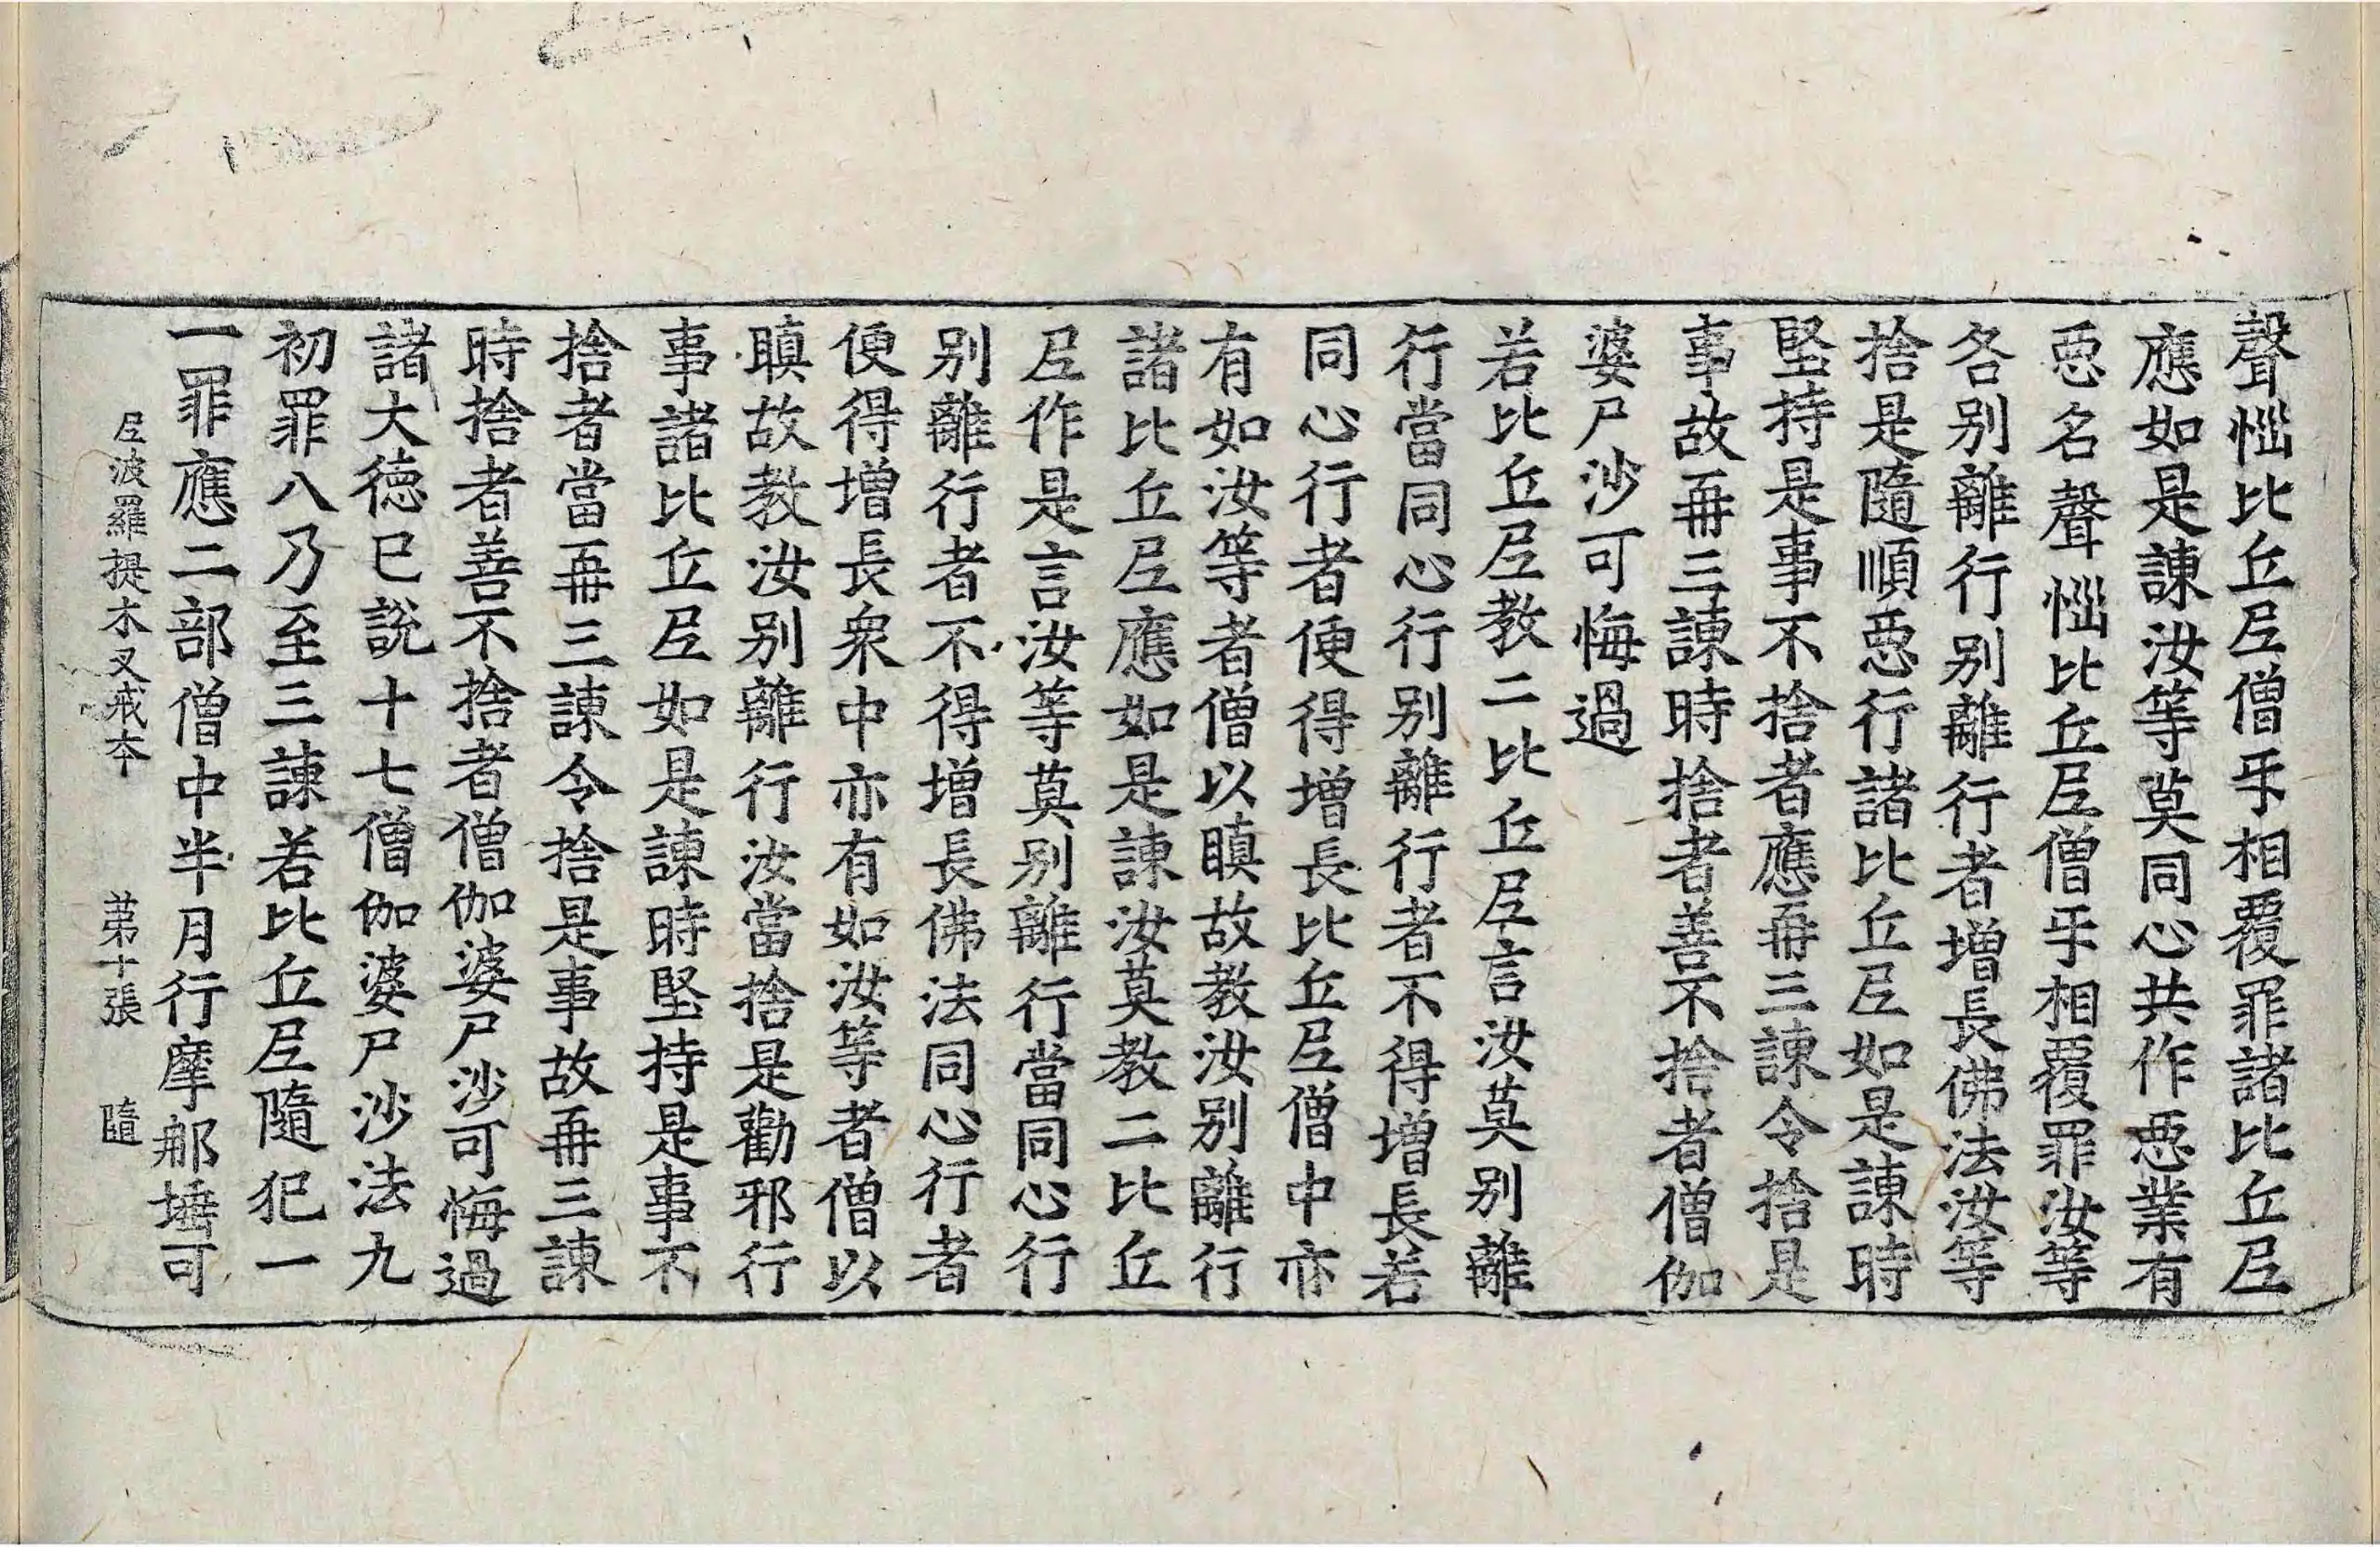 聲惱比丘尼僧𠄔相覆罪諸比丘尼
應如是諫汝等莫同心共作惡業有
惡名聲惱比丘尼僧𠄔相覆罪汝等
各別離行別離行者增長佛法汝等
捨是隨順惡行諸比丘尼如是諫時
堅持是事不捨者應再三諫令捨是
事故再三諫時捨者善不捨者僧伽
婆尸沙可悔過
若比丘尼教二比丘尼言汝莫別離
行當同心行別離行者不得增長若
同心行者便得增長比丘尼僧中亦
有如汝等者僧以瞋故教汝別離行
諸比丘尼應如是諫汝莫教二比丘
尼作是言汝等莫別離行當同心行
別離行者不得增長佛法同心行者
便得增長衆中亦有如汝等者僧以
瞋故教汝別離行汝當捨是勸邪行
事諸比丘尼如是諫時堅持是事不
捨者當再三諫令捨是事故再三諫
時捨者善不捨者僧伽婆尸沙可悔過
諸大德已說十七僧伽婆尸沙法九
初罪八乃至三諫若比丘尼隨犯一
一罪應二部僧中半月行摩那埵可
尼波羅提木叉戒本 第十張 隨